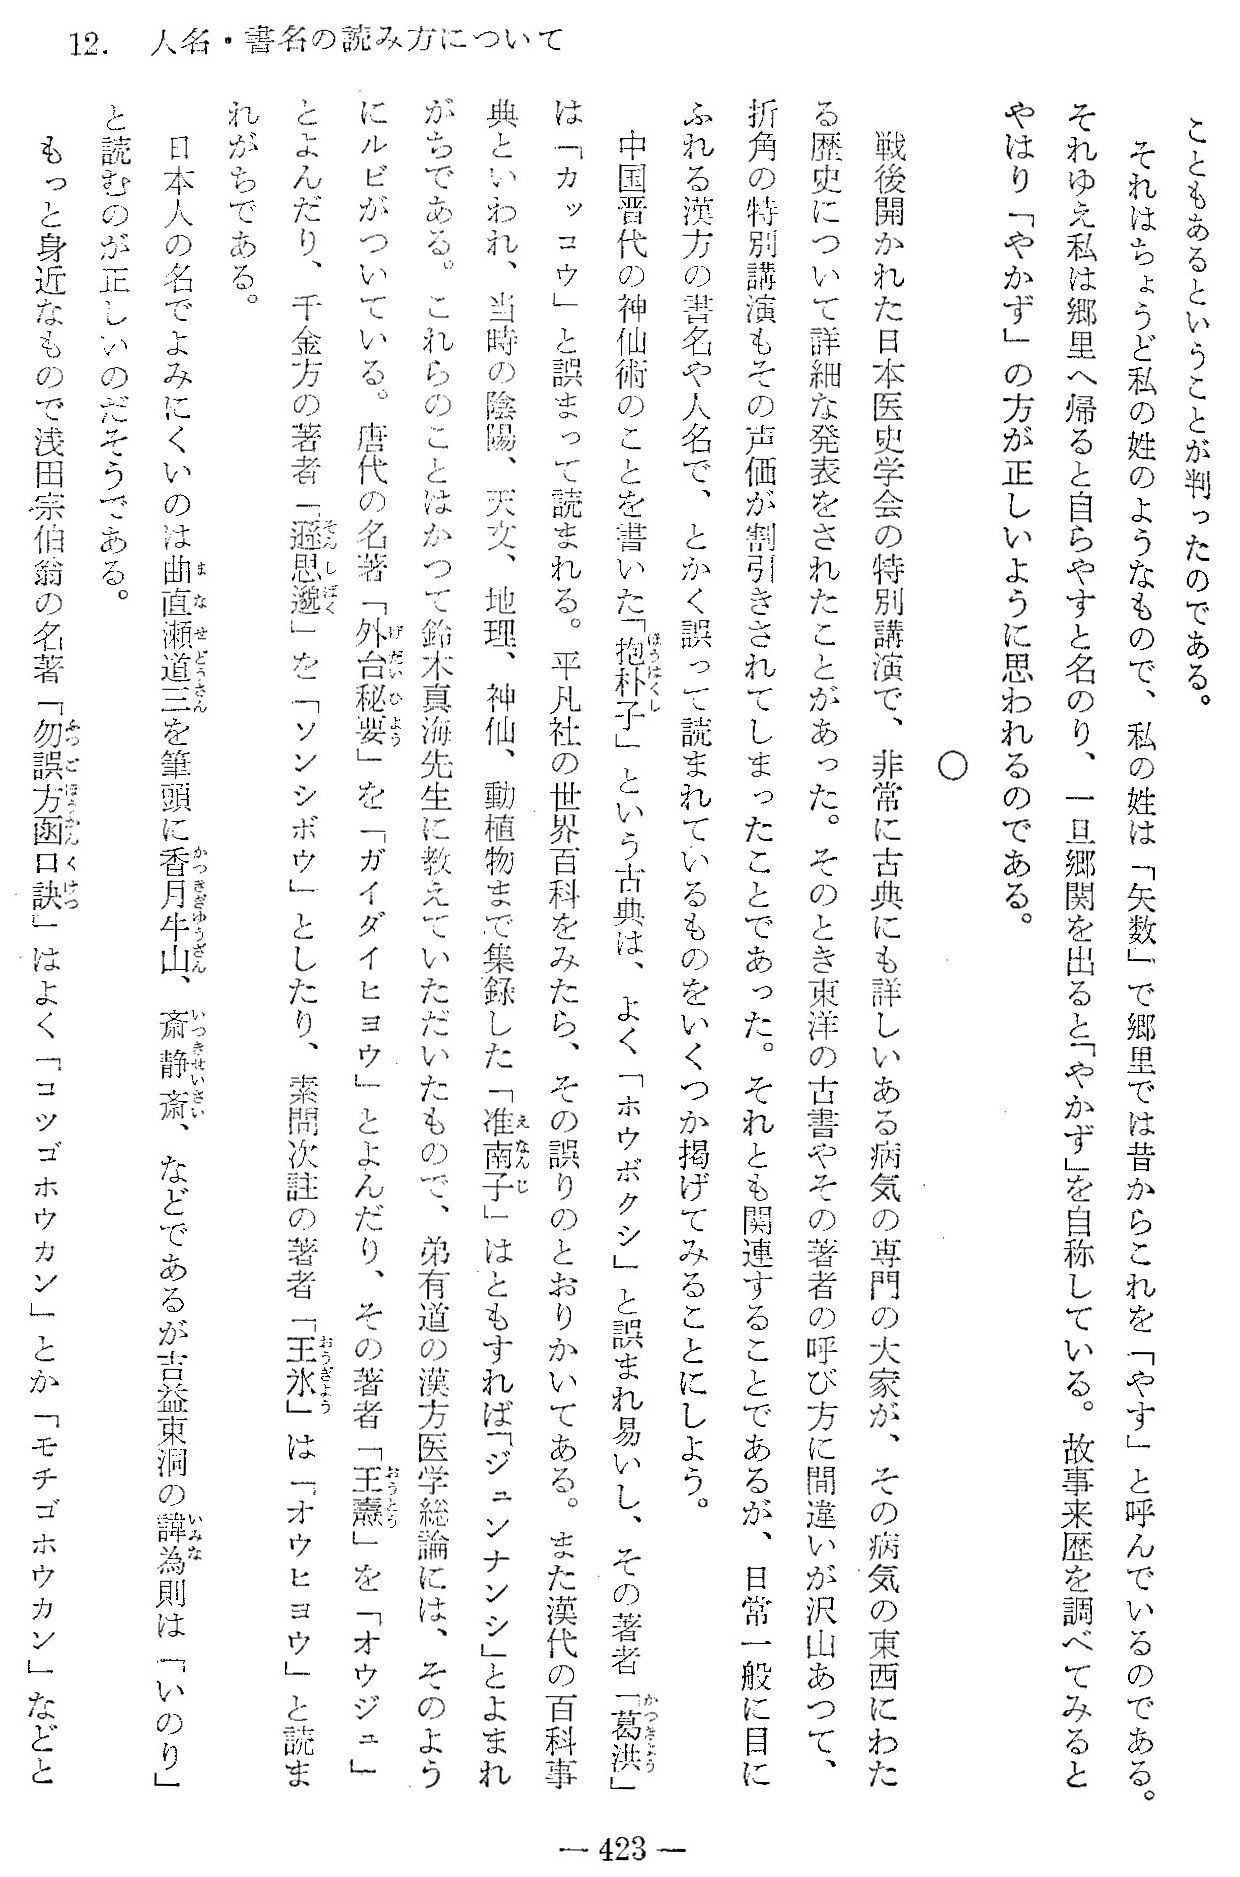 12. 人名・書名の読み方について
こともあるということが判ったのである。
それはちょうど私の姓のようなもので、私の姓は「矢数」で郷里では昔からこれを「やす」と呼んでいるのである。
それゆえ私は郷里へ帰ると自らやすと名のり、一旦郷関を出ると「やかず」を自称している。故事来歴を調べてみると
やはり「やかず」の方が正しいように思われるのである。
○
戦後開かれた日本医史学会の特別講演で、非常に古典にも詳しいある病気の専門の大家が、その病気の東西にわた
る歴史について詳細な発表をされたことがあった。そのとき東洋の古書やその著者の呼び方に間違いが沢山あつて、
折角の特別講演もその声価が割引きされてしまったことであった。それとも関連することであるが、日常一般に目に
ふれる漢方の書名や人名で、とかく誤って読まれているものをいくつか掲げてみることにしよう。
中国晋代の神仙術のことを書いた「抱朴子」という古典は、よく「ホウボクシ」と誤まれ易いし、その著者「葛洪」
ほうはくし かつきょう
は「カッコウ」と誤まって読まれる。平凡社の世界百科をみたら、その誤りのとおりかいてある。また漢代の百科事
典といわれ、当時の陰陽、天文、地理、神仙、動植物まで集録した「准南子」はともすれば「ジュンナンシ」とよまれ
えなんじ
がちである。これらのことはかつて鈴木真海先生に教えていただいたもので、弟有道の漢方医学総論には、そのよう
にルビがついている。唐代の名著「外台秘要」を「ガイダイヒヨウ」とよんだり、その著者「王燾」を「オウジュ」
げだいひよう おうとう
とよんだり、千金方の著者「遜思邈」を「ソンシボウ」としたり、素問次註の著者「王氷」は「オウヒョウ」と読ま
そんしばく おうぎよう
れがちである。
日本人の名でよみにくいのは曲直瀬道三を筆頭に香月牛山、斎静斎、などであるが吉益東洞の諱為則は「いのり」
まなせどうさん かつきぎゆうざん いつきせいさい いみな
と読むのが正しいのだそうである。
もっと身近なもので浅田宗伯翁の名著「勿誤方函口訣」はよく「コツゴホウカン」とか「モチゴホウカン」などと
ふつごほうかんくけつ
— 423 —